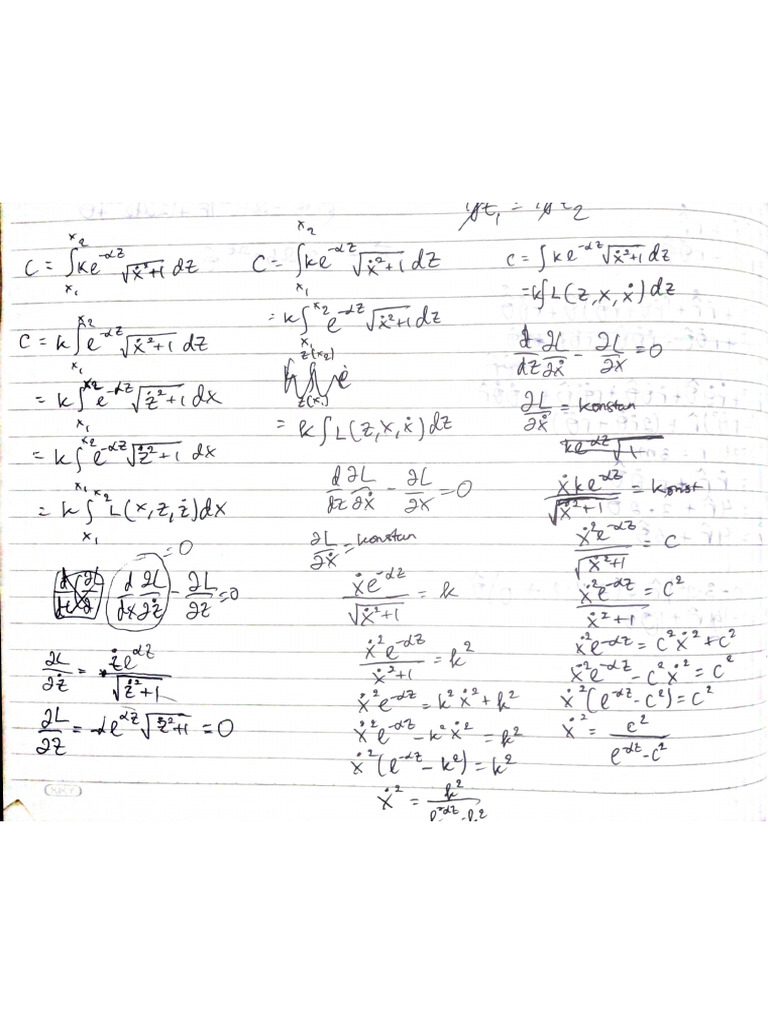 C = ∫_{x₁}^{x₂} ke^{-αz} √(ẋ²+1) dz
C = k ∫_{x₁}^{x₂} e^{-αz} √(ẋ²+1) dz
= k ∫_{x₁}^{x₂} e^{-αz} √(ż²+1) dx
= k ∫_{x₁}^{x₂} e^{-αz} √(ż²+1) dx
= k ∫_{x₁}^{x₂} L(x, z, ż) dx
= 0
d/dx ∂L/∂ż - ∂L/∂z = 0
∂L/∂ż = że^{αz}/√(ż²+1)
∂L/∂z = -αe^{αz} √(ż²+1) = 0
C = ∫_{x₁}^{x₂} ke^{-αz} √(ẋ²+1) dz
= k ∫_{x₁}^{x₂} e^{-αz} √(ẋ²+1) dz
z(x₂)
z(x₁)
= k ∫ L(z, x, ẋ) dz
d/dz ∂L/∂ẋ - ∂L/∂x = 0
∂L/∂ẋ = konstan
ẋe^{-αz}/√(ẋ²+1) = k
ẋ²e^{-αz}/(ẋ²+1) = k²
ẋ²e^{-αz} = k²ẋ² + k²
ẋ²e^{-αz} - k²ẋ² = k²
ẋ²(e^{-αz} - k²) = k²
ẋ² = k²/(e^{-αz} - k²)
C = ∫ ke^{-αz} √(ẋ²+1) dz
= k ∫ L(z, x, ẋ) dz
d/dz ∂L/∂ẋ - ∂L/∂x = 0
∂L/∂ẋ = konstan
ẋke^{-αz}/√(ẋ²+1) = konst
ẋ²e^{-αz}/√(ẋ²+1) = C
ẋ²e^{-αz}/(ẋ²+1) = C²
ẋ²e^{-αz} = C²ẋ² + C²
ẋ²e^{-αz} - C²ẋ² = C²
ẋ²(e^{-αz} - C²) = C²
ẋ² = C²/(e^{-αz} - C²)